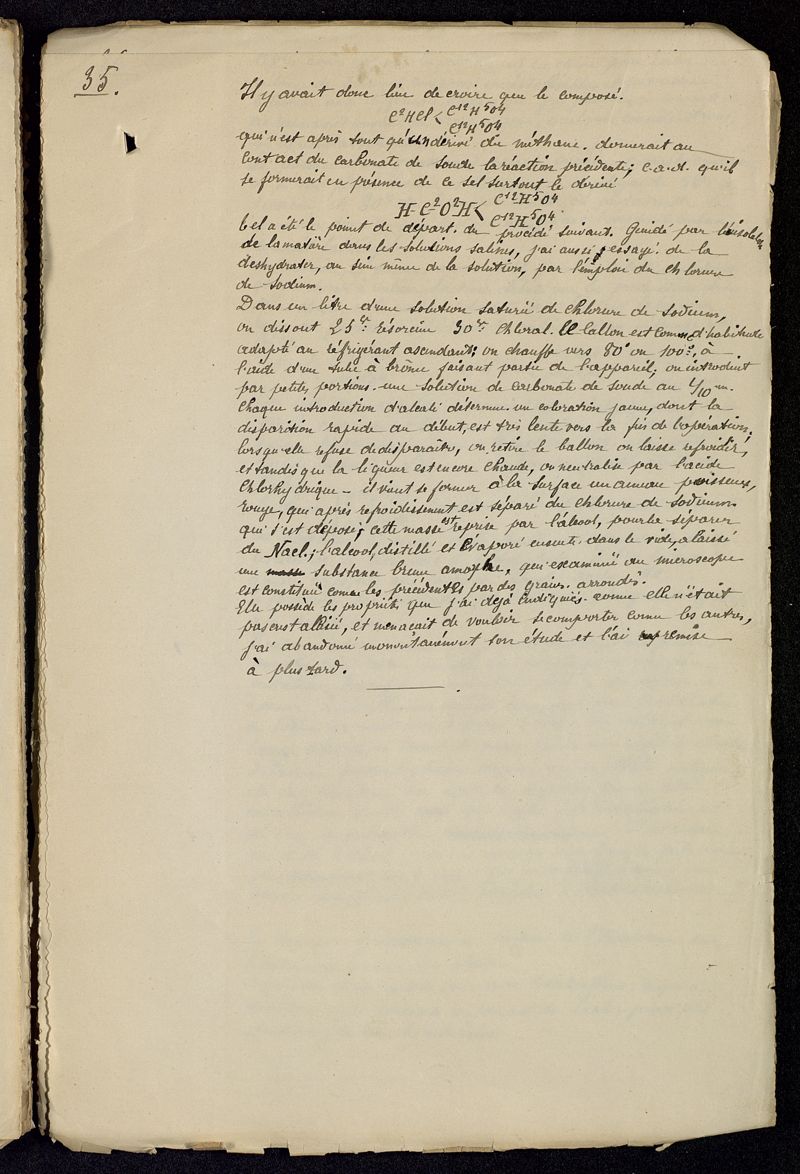 35.
Il y avait donc lieu de croire que le composé.
C²HCl < C¹²H⁵O⁴
C¹²H⁵O⁴
qui n'est après tout qu'un dérivé du méthane. donnerait au
contact du carbonate de soude la réaction précédente; c.a.d. qu'il
se formerait en présence de ce sel surtout le dérivé
H-C²O²H < C¹²H⁵O⁴
C¹²H⁵O⁴.
tel a été le point de départ. du procédé suivant. Guidé par l'insolubilité
de la matière dans les solutions salines, j'ai aussi essayé. de la
deshydrater, au sein même de la solution, par l'emploi du chlorure
de sodium.
Dans un litre d'une solution saturée de chlorure de sodium,
on dissout 25gr. résorcine 30gr. chloral. le ballon est comme d'habitude
adapté au réfrigérant ascendant; on chauffe vers 80° ou 100°, à
l'aide d'une tube à brôme faisant partie de l'appareil; on introduit
par petites portions. une solution de carbonate de soude au 1/10 m.
Chaque introduction d'alcali détermine un coloration jaune, dont la
disparition rapide au début, est très lente vers la fin de l'opération.
lorsqu'elle refuse de disparaître, on retire le ballon on laisse refroidir,
et tandis que la liqueur est encore chaude, on neutralise par l'acide
chlorhydrique - il vient se former à la surface un anneau poisseux,
rouge, qui après refroidissement est séparé du chlorure de sodium
qui s'est déposé; cette masse est reprise par l'alcool, pour la séparer
du Nacl.; l'alcool, distillé et évaporé ensuite dans le vide, a laissé
une masse substance brune amophe, qui examinée au microscope
est constituée comme les précédentes par des grains. arrondis.
Elle possède les propriétés que j'ai déjà indiquées. comme elle n'était
pas cristallisée, et menaçait de vouloir se comporter comme les autres,
j'ai abandonné momentanément son étude et l'ai remise
à plus tard.